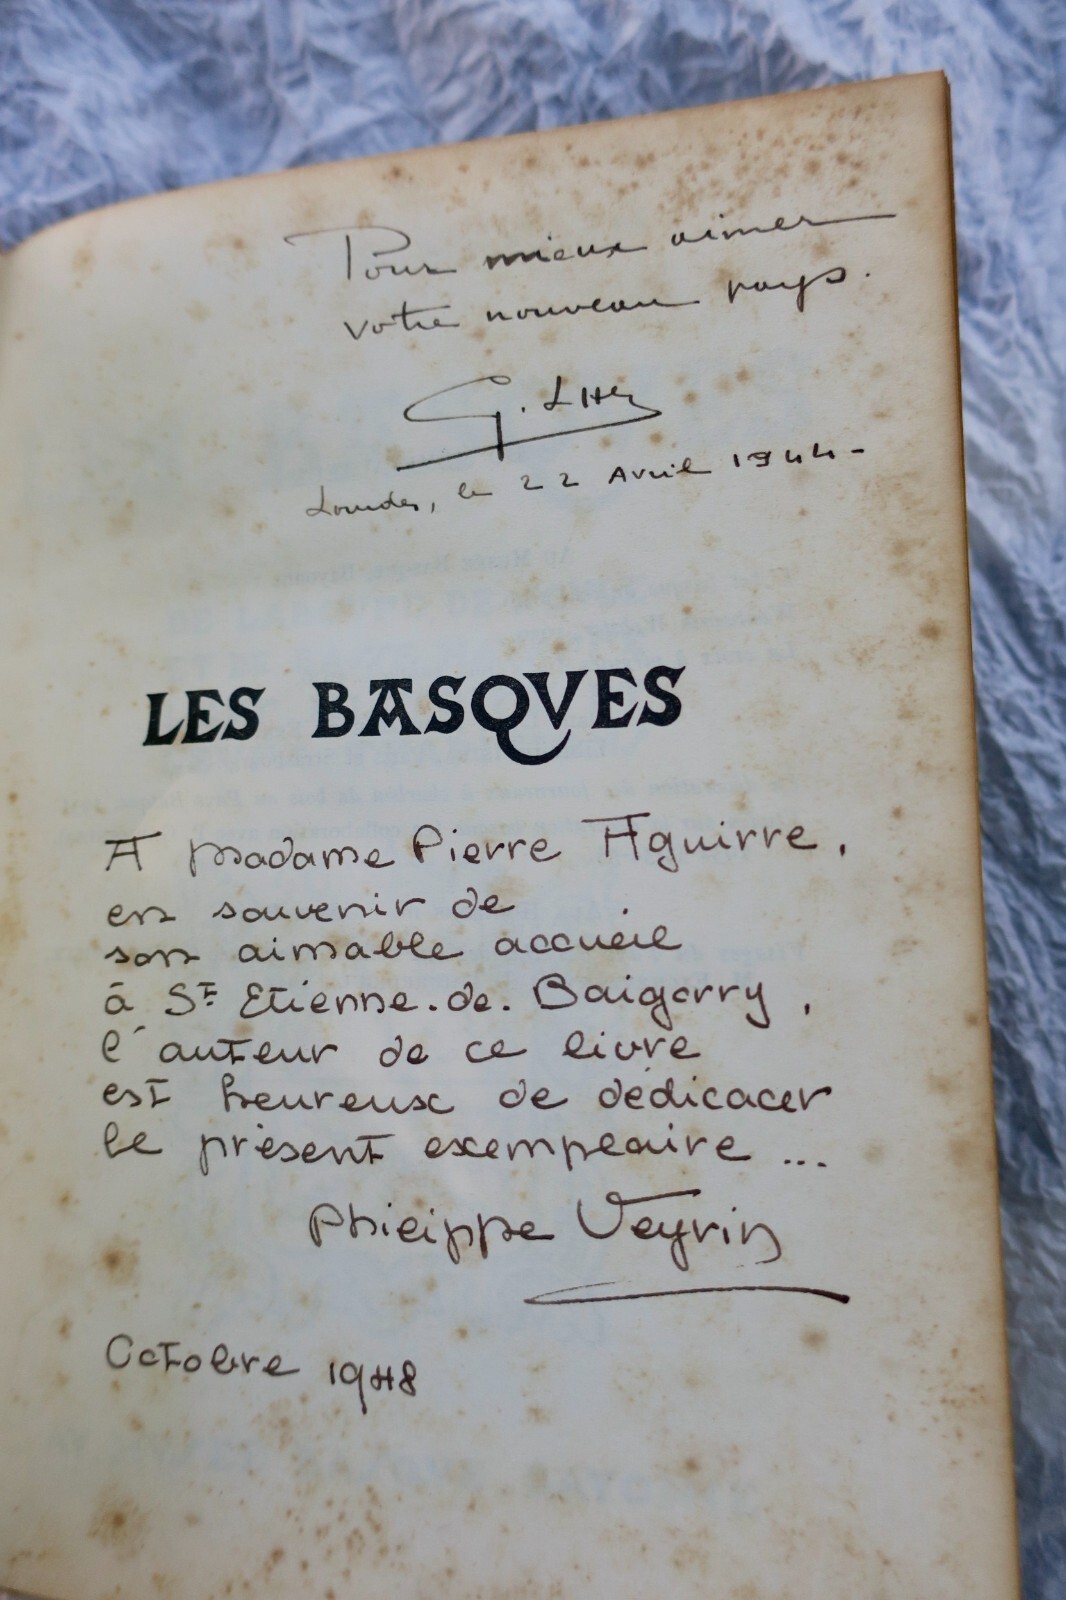 Pour mieux aimer
votre nouveau pays.
G. LHer
Lourdes, le 22 Avril 1944-
LES BASQVES
A Madame Pierre Aguirre,
en souvenir de
son aimable accueil
à St Etienne.de.Baigorry,
l'auteur de ce livre
est heureux de dédicacer
le présent exemplaire ...
Philippe Veyrin
Octobre 1948